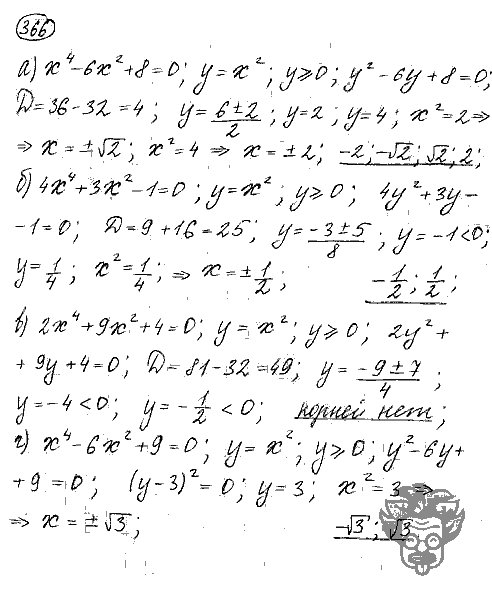 366
а) x⁴-6x²+8=0; y=x²; y≥0; y²-6y+8=0;
D=36-32=4; y=(6±2)/2; y=2; y=4; x²=2⇒
⇒ x=±√2; x²=4 ⇒ x=±2; -2;-√2;√2;2;
б) 4x⁴+3x²-1=0; y=x²; y≥0; 4y²+3y-
-1=0; D=9+16=25; y=(-3±5)/8; y=-1<0;
y=1/4; x²=1/4; ⇒ x=±1/2; -1/2; 1/2;
в) 2x⁴+9x²+4=0; y=x²; y≥0; 2y²+
+9y+4=0; D=81-32=49; y=(-9±7)/4;
y=-4<0; y=-1/2<0; корней нет;
г) x⁴-6x²+9=0; y=x²; y≥0; y²-6y+
+9=0; (y-3)²=0; y=3; x²=3 ⇒
⇒ x=±√3; -√3; √3